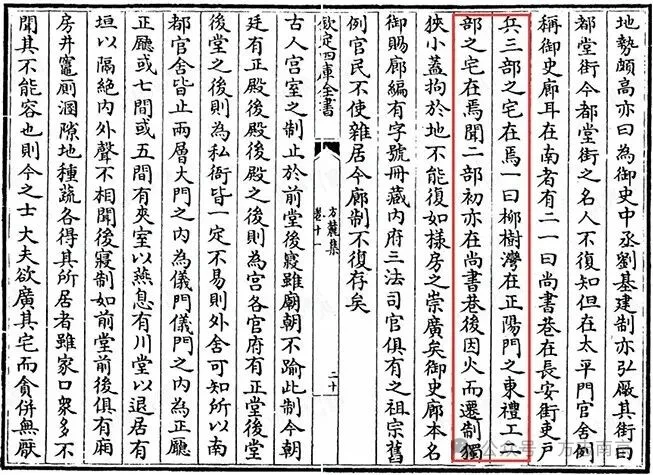 地勢頗高亦曰為御史中丞劉基建制亦弘厰其街曰
都堂街今都堂街之名人不復知但在太平門官舍例
稱御史廊耳在南者有二一曰尚書巷在長安街吏戶
兵三部之宅在焉一曰柳樹灣在正陽門之東禮工二
部之宅在焉聞二部初亦在尚書巷後因火而遷制獨
狹小蓋拘於地不能復如様房之崇廣矣御史廊本名
御賜廊編有字號冊藏内府三法司官俱有之祖宗舊
例官民不使雜居今廊制不復存矣
欽定四庫全書
方麓集
卷十一
二十
古人宫室之制止於前堂後寢雖廟朝不踰此制今朝
廷有正殿後殿後殿之後則為宫各官府有正堂後堂
後堂之後則為私衙皆一定不易則外舍可知所以南
都官舍皆止兩層大門之内為儀門儀門之内為正㕔
正㕔或七間或五間有夾室以燕息有川堂以退居有
垣以隔絶内外聲不相聞後寢制如前堂前後俱有廂
房井竈厠溷隙地種蔬各得其所居者雖家口衆多不
聞其不能容也則今之士大夫欲廣其宅而貪併無厭
公众号